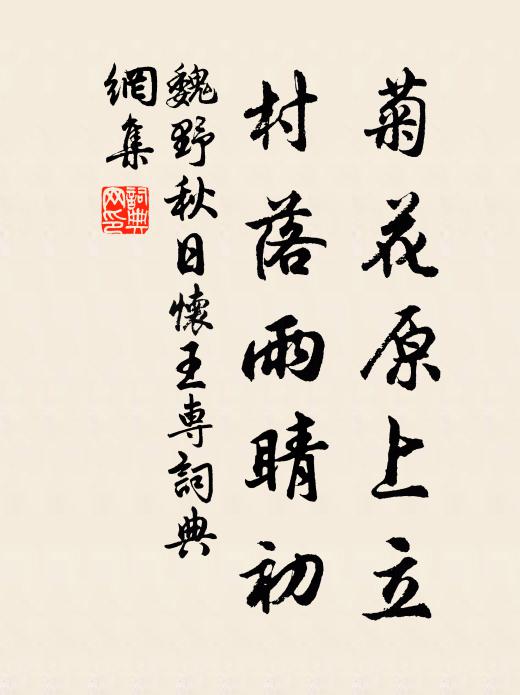 菊花原上立
村落雨晴初
魏野秋日懷王専詞典
網集
詞典網印